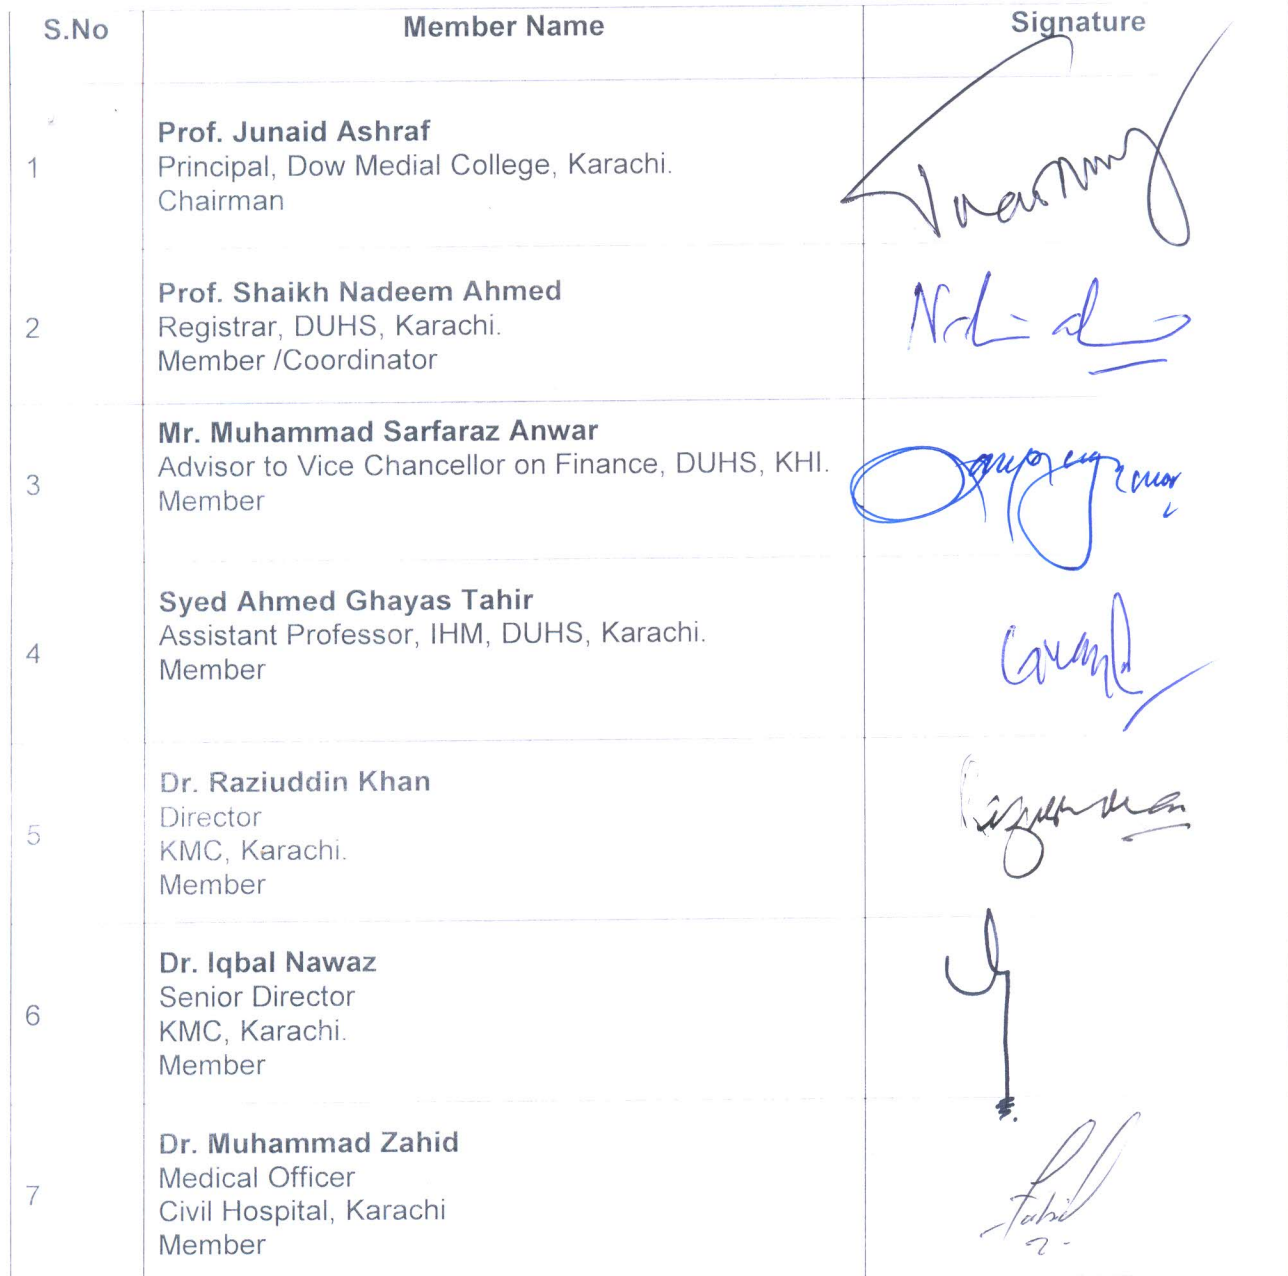 S.No Member Name Signature
1
Prof. Junaid Ashraf
Principal, Dow Medial College, Karachi.
Chairman
2
Prof. Shaikh Nadeem Ahmed
Registrar, DUHS, Karachi.
Member /Coordinator
3
Mr. Muhammad Sarfaraz Anwar
Advisor to Vice Chancellor on Finance, DUHS, KHI.
Member
4
Syed Ahmed Ghayas Tahir
Assistant Professor, IHM, DUHS, Karachi.
Member
5
Dr. Raziuddin Khan
Director
KMC, Karachi.
Member
6
Dr. Iqbal Nawaz
Senior Director
KMC, Karachi.
Member
7
Dr. Muhammad Zahid
Medical Officer
Civil Hospital, Karachi
Member